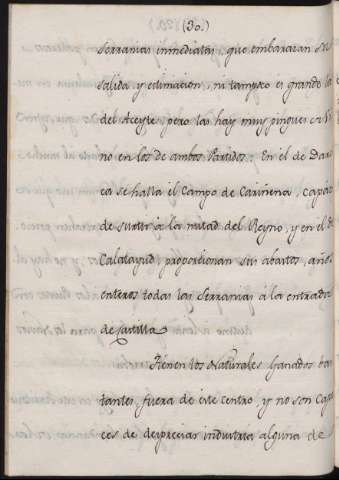 (30.)
Serranias inmediatas, que embarazan su
salida, y estimacion, ni tampoco es grande la
del Aceyte; pero las hay muy pingues en Vi
no en los de ambos Partidos: En el de Daro
ca se halla el Campo de Cariñena, capáz
de surtir à la mitad del Reyno, y en el de
Calatayud, proporcionan sus abastos, años
enteros todas las Serranias à la entrada
de Castilla.
Tienen los Naturales ganados bas
tantes, fuera de este centro, y no son capa
ces de despreciar industria alguna de